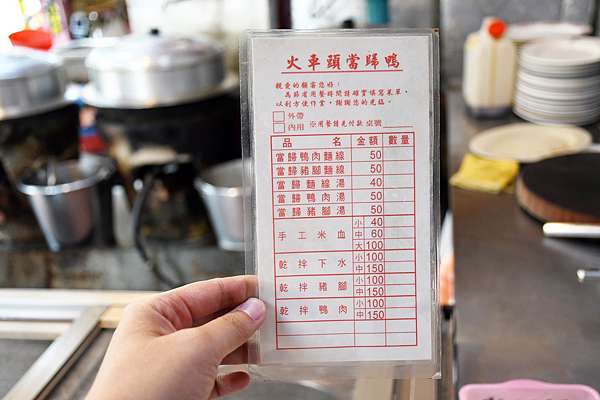 火車頭當歸鴨
親愛的顧客您好：
為節省用餐時間請確實填寫菜單，
以利方便作業，謝謝您的光臨。
□外帶
□內用 ※用餐請先付款 桌號：
品名 金額 數量
當歸鴨肉麵線 50
當歸豬腳麵線 50
當歸麵線湯 40
當歸鴨肉湯 50
當歸豬腳湯 50
手工米血 小 40
中 60
大 100
乾拌下水 小 100
中 150
乾拌豬腳 小 100
中 150
乾拌鴨肉 小 100
中 150